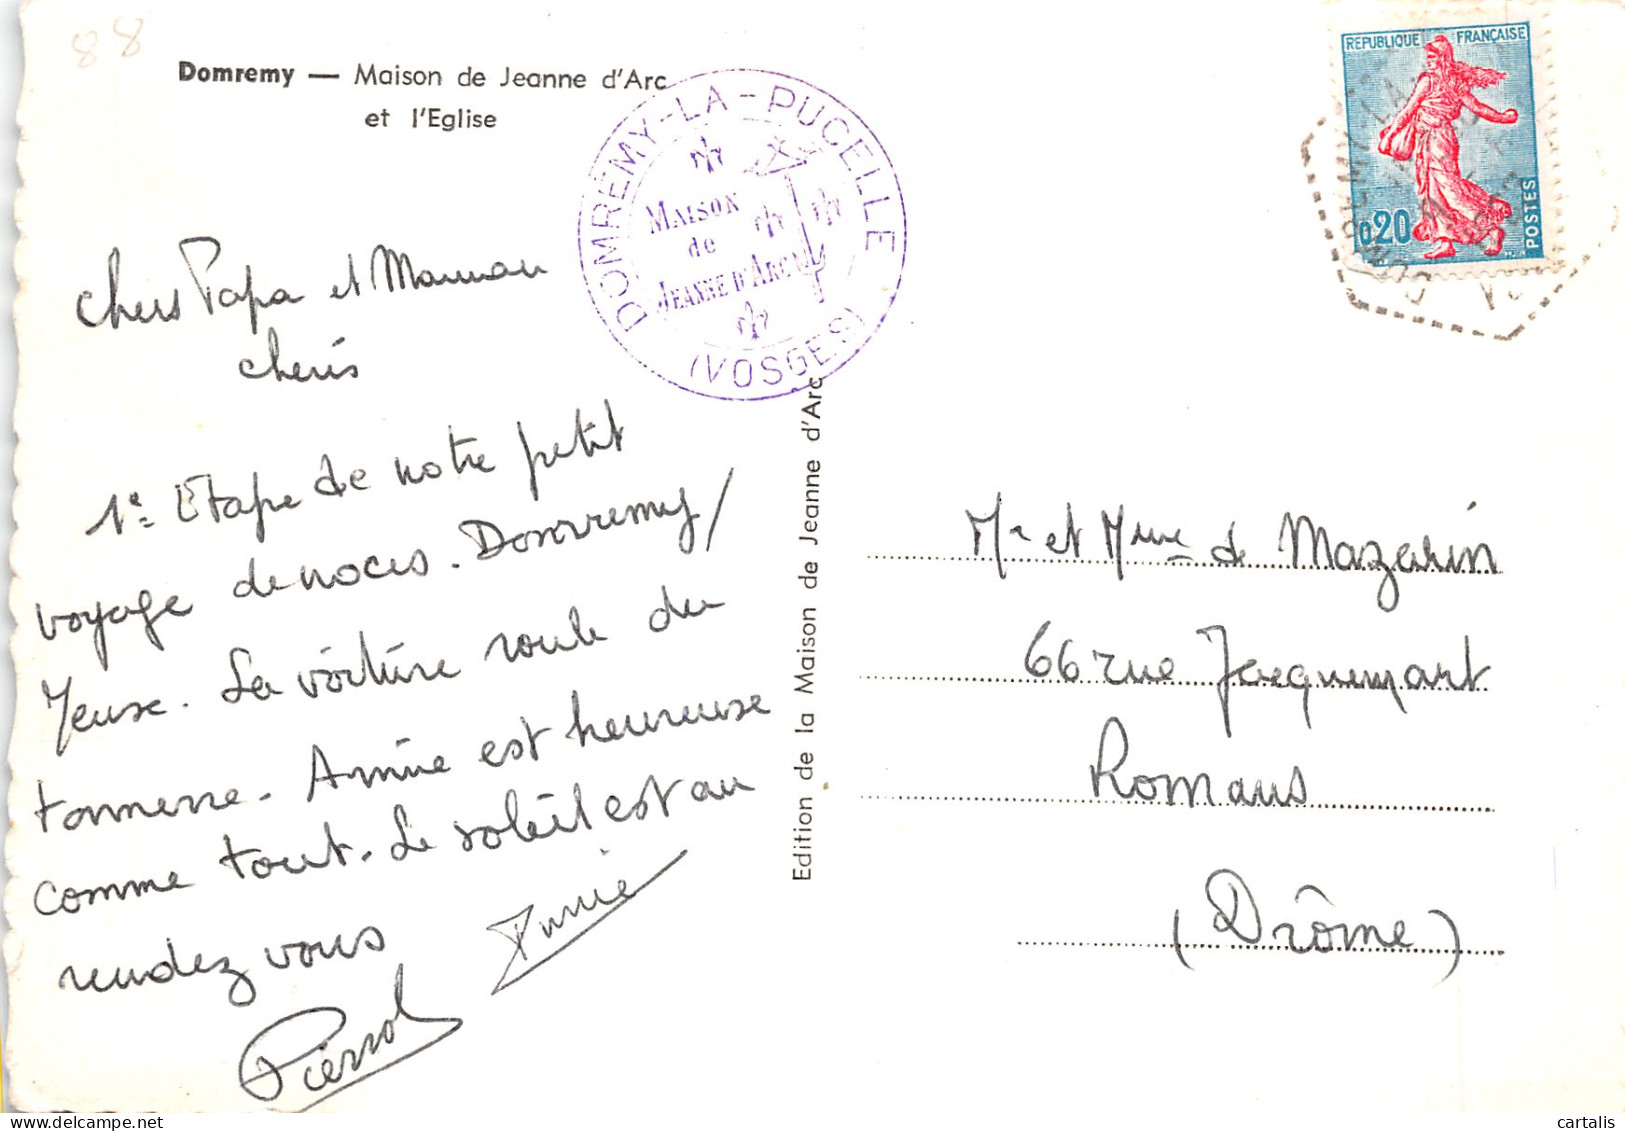 88
Domremy — Maison de Jeanne d'Arc
et l'Eglise
DOMRÉMY-LA-PUCELLE
MAISON
de
JEANNE D'ARC
(VOSGES)
REPUBLIQUE FRANÇAISE
0,20
POSTES
Chers Papa et Maman
chéris
1e Etape de notre petit
voyage de noces. Domremy/
Meuse. La voiture roule du
tonnerre. Annie est heureuse
comme tout. Le soleil est au
rendez vous
Annie
Pierrot
Edition de la Maison de Jeanne d'Arc
Mr et Mme de Mazarin
66 rue Jacquemart
Romans
(Drôme)
cartalis